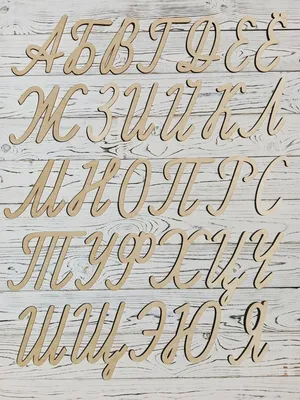 АБВГДЕЁ
ЖЗИЙКЛ
МНОПРС
ТУФХЦЧ
ШЩЭЮЯ